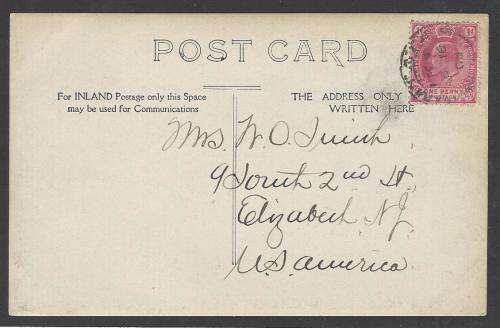 POST CARD
For INLAND Postage only this Space
may be used for Communications
THE ADDRESS ONLY
WRITTEN HERE
Mrs. W. O.
9 South 2nd St
Elizabeth NJ
U.S. America
ONE PENNY